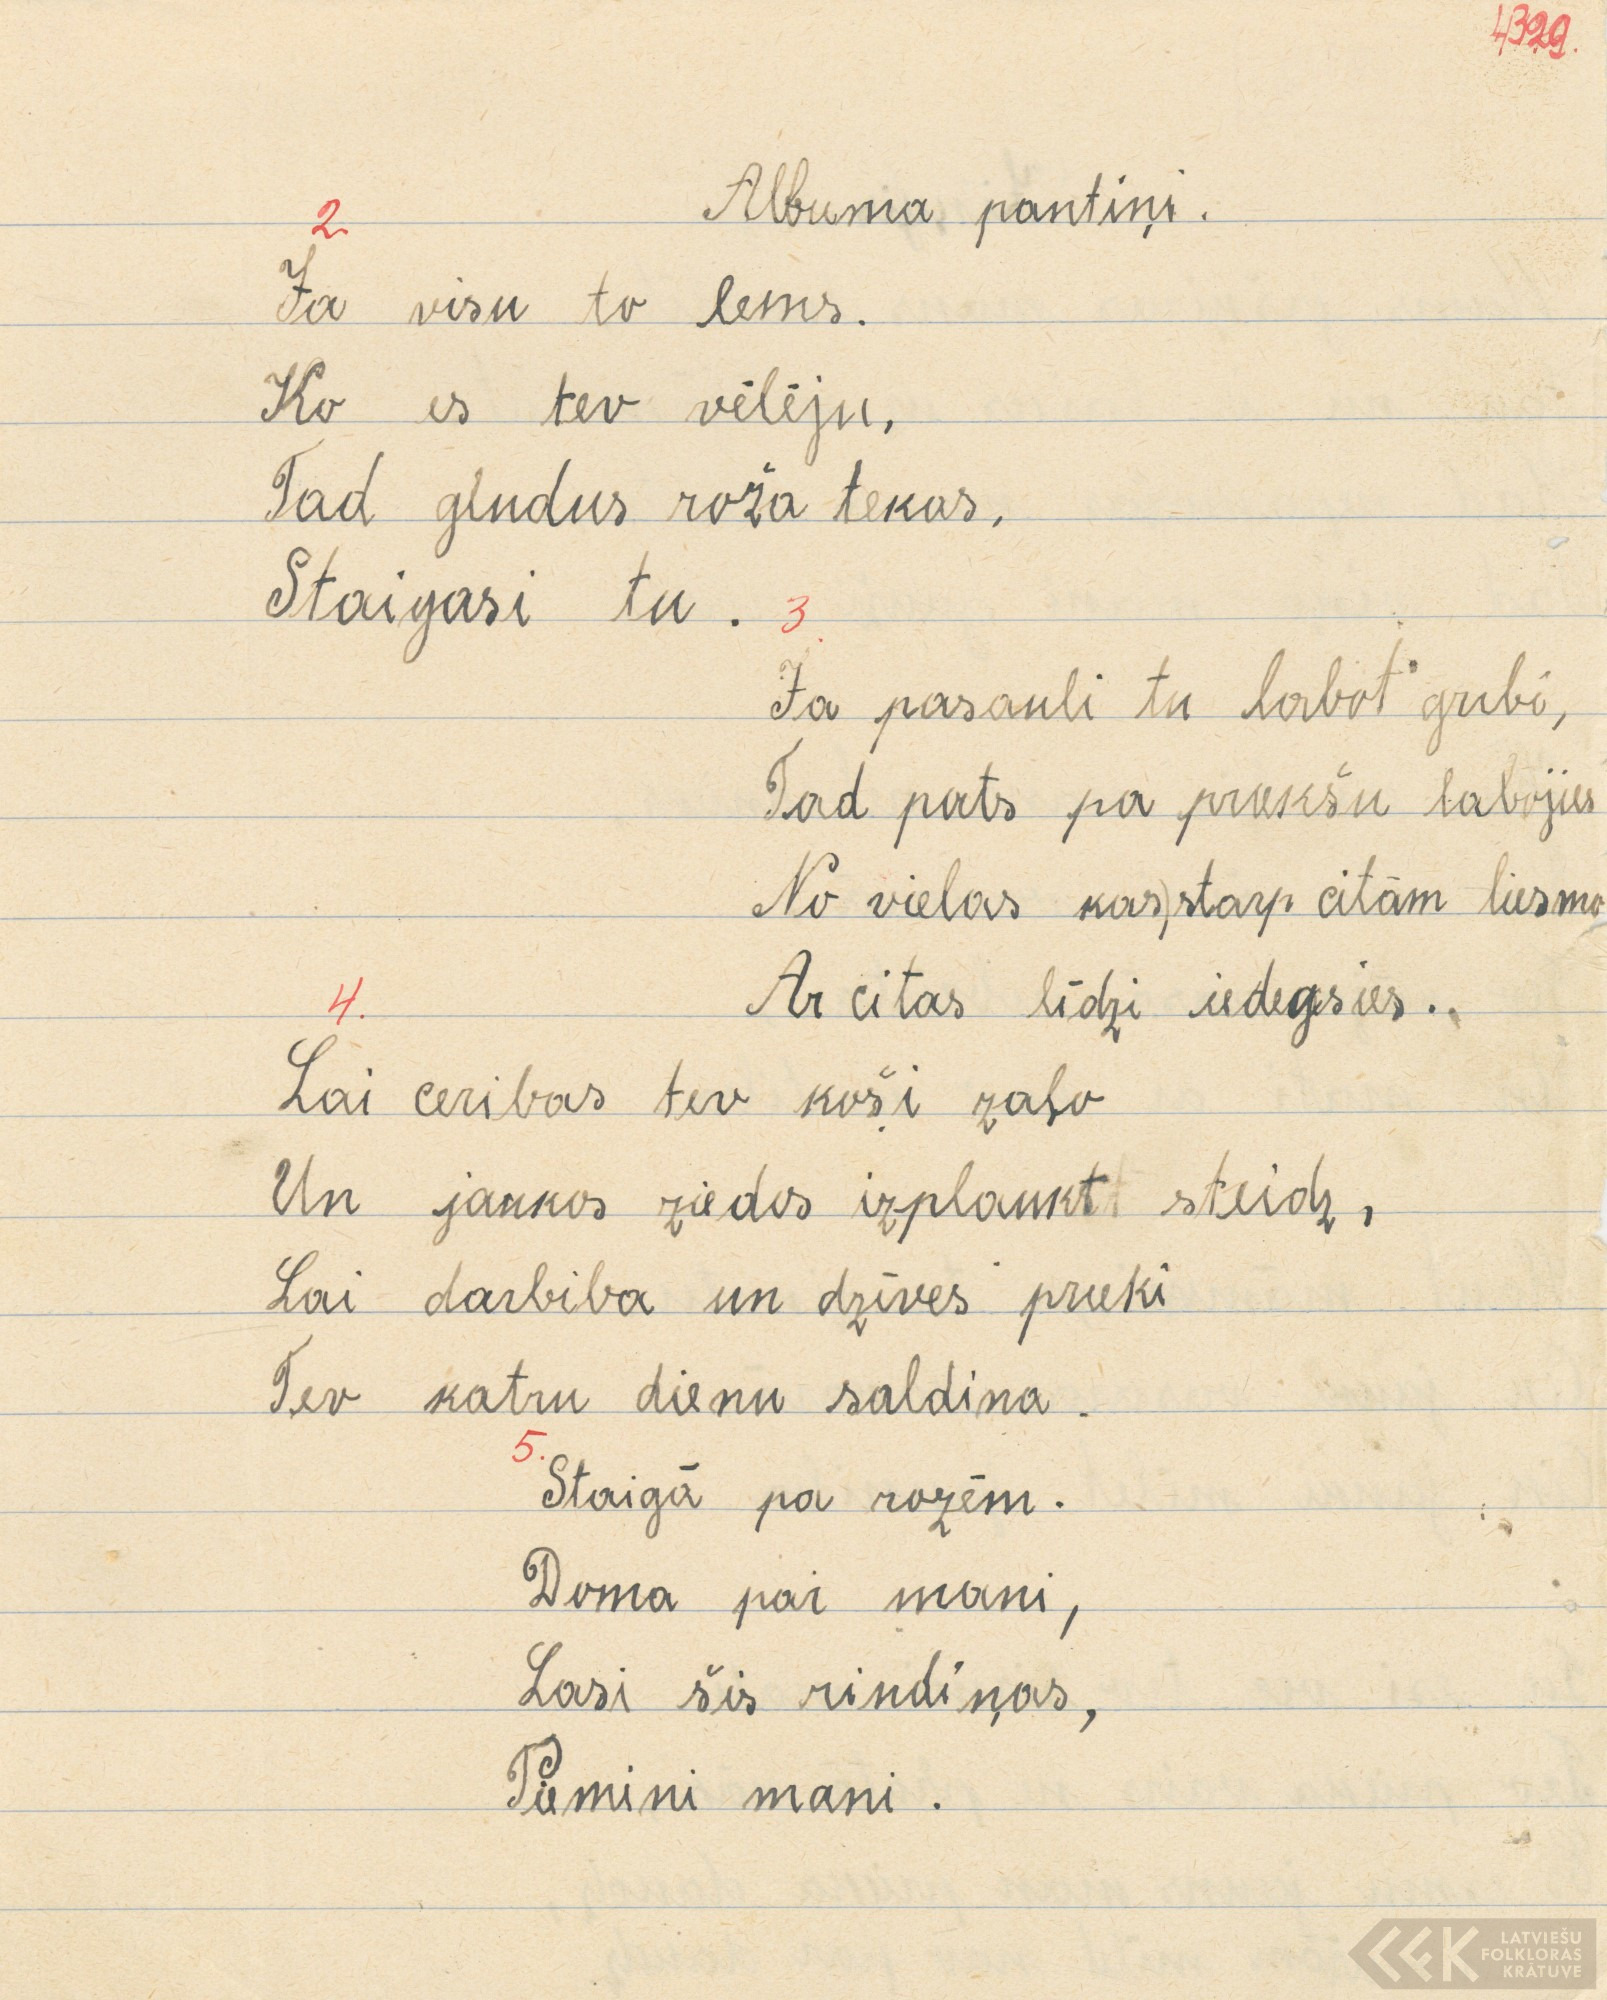 4329.
Albuma pantiņi.
2.
Ja visu to lems.
Ko es tev vēlēju,
Tad gludus roža tekas,
Staigasi tu.
3.
Ja pasauli tu labot gribi,
Tad pats pa priekšu labojies
No vielas kas, starp citām liesmo
Ar citas līdzi iedegsies.
4.
Lai ceribas tev koši zaļo
Un jaukos ziedos izplaukt steidz,
Lai darbiba un dzīves prieki
Tev katru dienu saldina.
5.
Staigā pa rozēm.
Doma pai mani,
Lasi šis rindiņas,
Piemini mani.
LATVIEŠU
FOLKLORAS
KRĀTUVE